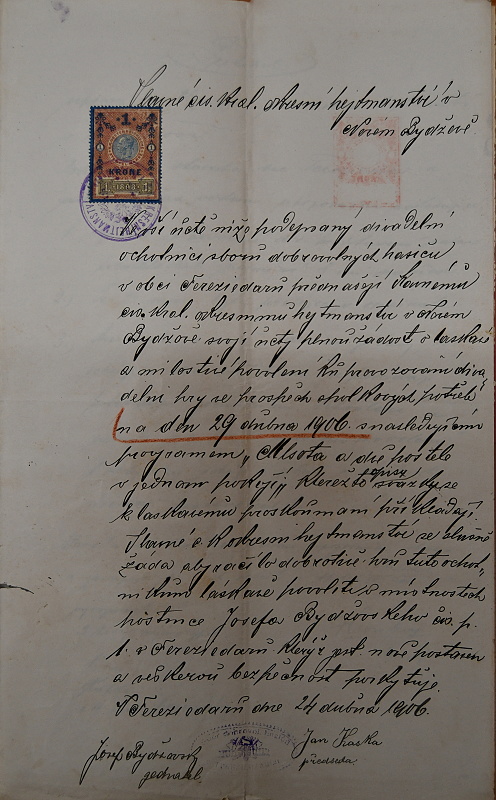 Slavné cís. král. okresní hejtmanství v
Novém Bydžově
1
KRONE
1 1898 1
níže podepsaný divadelní
ochotníci sboru dobrovolných hasičů
v obci Tereziodaru přednášejí Slavnému
cís. král. okresnímu hejtmanství v Novém
Bydžově svojí úcty plnou žádost o laskavé
a milostivé povolení ku provozování diva
delní hry ve prospěch spolkových potřeb
na den 29 dubna 1906. s následujícím
programem „Mlsota a dvě postele
v jednom pokoji„ kterežto opisz svazky se
k laskavému proskoumaní při kládají.
Slavné c. k okresní hejtmanství se slušně
žáda aby račilo dobrotivě hru tuto ochot„
níkum láskavě povoliti v místnostech
hostince Josefa Bydžovskeho čís. p.
1. v Tereziodaru kterýž jest nově postaven
a veškerou bezpečnost poskytuje.
V Tereziodaru dne 24 dubna 1906.
Josef Bydžovský
jednatel
Jan
předseda